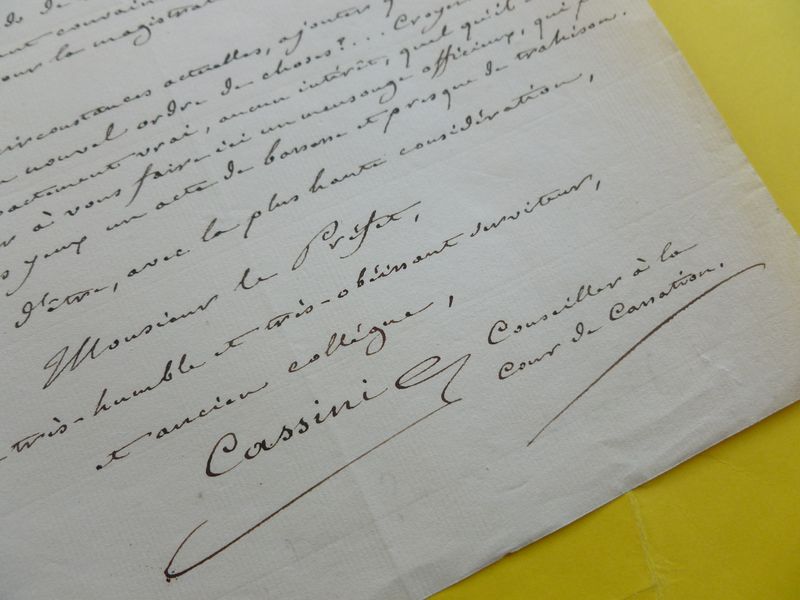 do de
convain
pour la magistrat
circonstances actuelles, ajouter
nouvel ordre de choses?... Croyez
exactement vrai, aucun intérêt, quel qu'il
à vous faire ici un mensonge officieux, qui
yeux un acte de bassesse et presque de trahison.
d'être, avec la plus haute considération,
Monsieur le Préfet,
très-humble et très-obéissant serviteur,
et ancien collégue,
Cassini
Conseiller à la
Cour de Cassation.